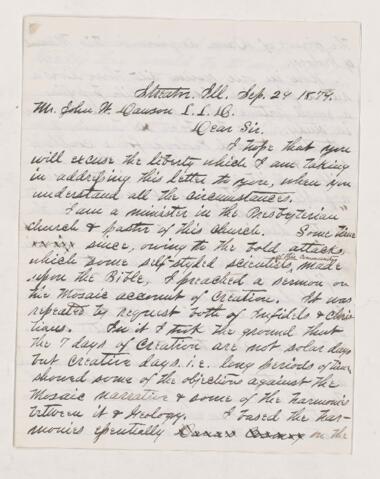 Streator, Ill. Sep. 24 1879.
Mr. John W. Dawson L. L. D.
Dear Sir.
I hope that you
will excuse the liberty which I am taking
in addressing this letter to you, when you
understand all the circumstances.
I am a minister in the Presbyterian
church & pastor of this church. Some time
since, owing to the bold attacks,
of this community
which some self-styled scientists made
upon the Bible, I preached a sermon on
the Mosaic account of Creation. It was
repeated by request both of infidels & Chris
tians. In it I took the ground that
the 7 days of Creation are not solar days
but creative days. i.e. long periods of time
showed some of the objections against the
Mosaic narrative & some of the harmonies
between it & Geology. I based the har-
monies essentially on the